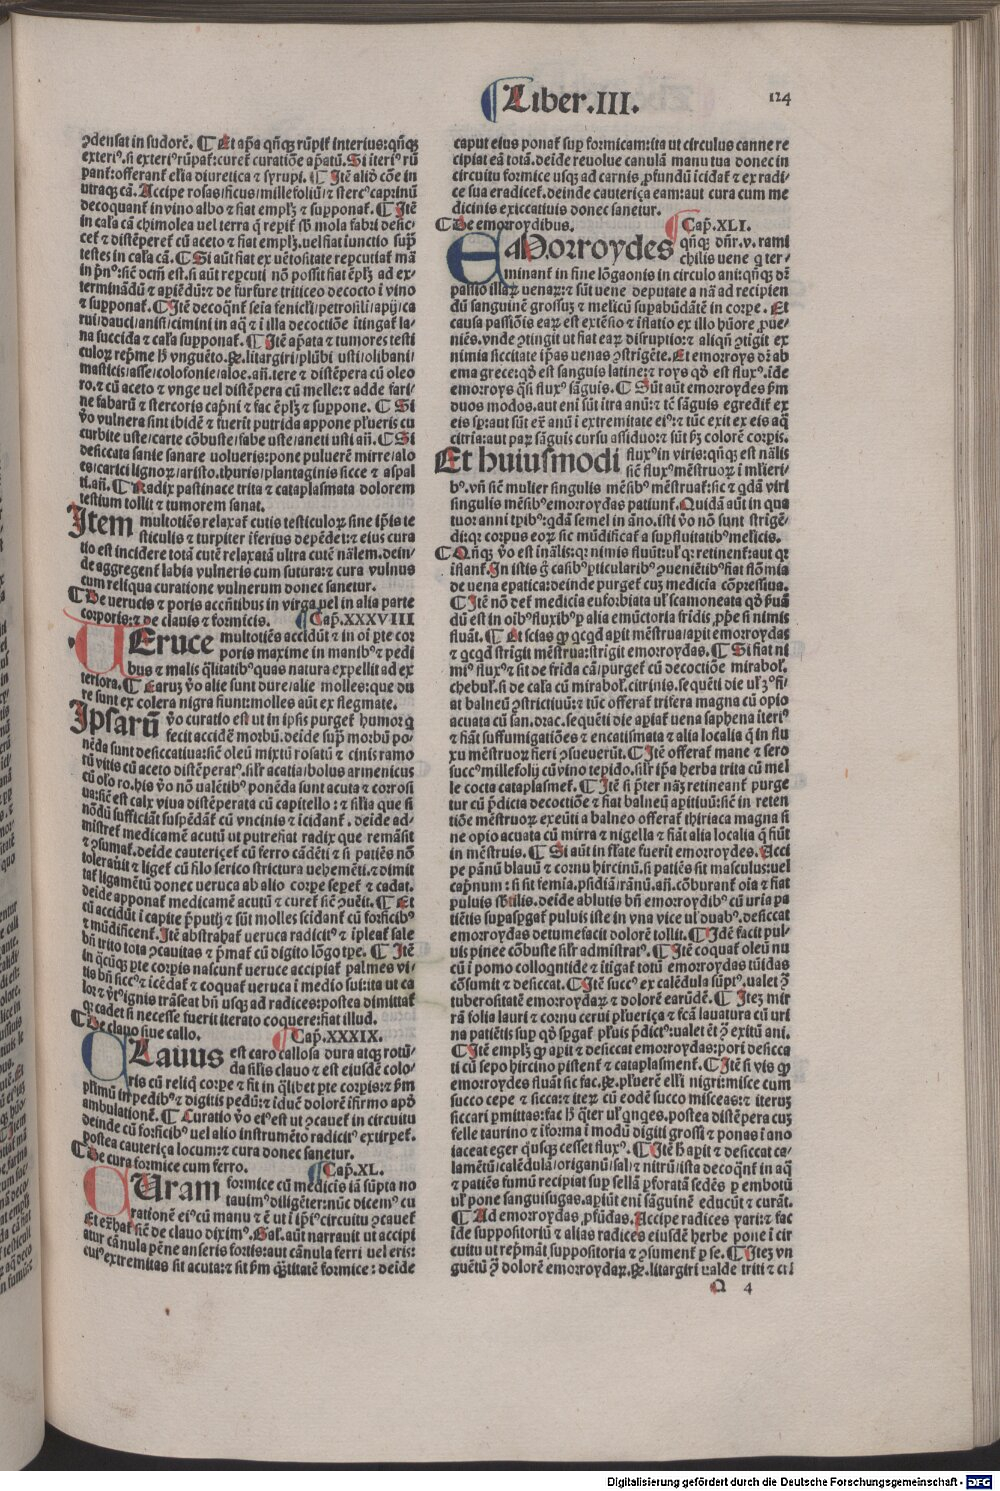 Liber.III.
124
ↄdensat in sudorē. ¶ Et ap̄a qn̄qꝫ rūpiť interius: qn̄qꝫ
exteriꝰ. si exteriꝰ rūpať: cureť curatiōe apatū. Si īteriꝰ rū
panť: offeranť elīa diuretica ⁊ syrupi. ¶ Itē aliō cōe in
utraqꝫ cā. Accipe rosas/ficus/millefoliū/⁊ stercꝰ cap̄inū
decoquanť in vino albo ⁊ fiat emplꝫ ⁊ supponať. ¶ Itē
in cala cā chimolea uel terra q̄ repiť sb̄ mola fabri desic-
ceť ⁊ distēpereť cū aceto ⁊ fiat emplꝫ. uel fiat iunctio sup̄
testes in cala cā. ¶ Si aūt fiat ex uētositate repcutiať mā
in p̄nᵒ: sic̄ dcm̄ est. si aūt repcuti nō possit fiat ēplꝫ ad ex-
terminādū ⁊ apiēdū: ⁊ de furfure triticeo decocto i vino
⁊ supponať. ¶ Itē decoqn̄ť seīa feniclī/petrosilī/apij/ca
rui/dauci/anisi/cimini in aq̄ ⁊ i illa decoctiōe itingať la-
na succida ⁊ cala supponať. ¶ Itē ap̄ata ⁊ tumores testi
culoꝝ rep̄me h̄ vnguēto. ℞. litargiri/plūbi usti/olibani/
masticis/asse/colofonie/aloe. an̄. tere ⁊ distēpera cū oleo
ro. ⁊ cū aceto ⁊ vnge uel distēpera cū melle: ⁊ adde fari-
ne fabarū ⁊ stercoris cap̄ni ⁊ fac ēplꝫ ⁊ suppone. ¶ Si
ṽo vulnera sint ibidē ⁊ fuerit putrida appone plueris cu
curbite uste/carte cōbuste/fabe uste/aneti usti an̄. ¶ Si
desiccata sanie sanare uolueris: pone puluerē mirre/alo
es/carici lignoꝝ/aristo. thuris/plantaginis sicce ⁊ aspal
ti. an̄. ¶ Radix pastinace trita ⁊ cataplasmata dolorem
testium tollit ⁊ tumorem sanat.
Item multotiēs relaxať cutis testiculoꝝ sine ip̄is te
sticulis ⁊ turpiter iferius depēdēt: ⁊ eius cura
tio est incidere totā cutē relaxatā ultra cutē nālem. dein-
de aggregenť labia vulneris cum sutura: ⁊ cura vulnus
cum reliqua curatione vulnerum donec sanetur.
¶ De verucis ⁊ poris accn̄tibus in virga uel in alia parte
corporis: ⁊ de clauis ⁊ formicis. ¶ Cap̄.XXXVIII
VEruce multotiēs accidūt ⁊ in oī pte cor
poris maxime in manibꝰ ⁊ pedi
bus ⁊ malis q̄litatibꝰ quas natura expellit ad ex
teriora. ¶ Earuꝫ ṽo alie sunt dure/alie molles: que du
re sunt ex colera nigra fiunt: molles aūt ex flegmate.
Ipsarū ṽo curatio est ut in ipsis purgeť humor q
fecit accidē morbū. deide sup̄ morbū po-
nēda sunt desiccatiua: sic̄ oleū mixtū rosatū ⁊ cinis ramo
rū vitis cū aceto distēperatꝰ. silr̄ acatia/bolus armenicus
cū olo ro. his ṽo nō ualētibꝰ ponēda sunt acuta ⁊ corrosi
ua: sic̄ est calx viua distēperata cū capitello: ⁊ silia que si
nōdū sufficiāt suspēdať cū vncinis ⁊ icidanť. deide ad-
mistreť medicamē acutū ut putrefiat radix que remāsit
⁊ ↄsumať. deide cauteriçeť cū ferro cādēti ⁊ si patiēs nō
tolerauit ⁊ ligeť cū filo serico strictura uehemēti. ⁊ dimit
tať ligamētū donec ueruca ab alio corpe sepeť ⁊ cadat.
deide apponať medicamē acutū ⁊ cureť sic̄ ↄuēit. ¶ Et
cū accidūt i capite p̄putij ⁊ sūt molles scidanť cū forficibꝰ
⁊ mūdificenť. Itē abstrahať ueruca radicitꝰ ⁊ ipleať sale
bn̄ trito tota ↄcauitas ⁊ p̄mať cū digito lōgo tpe. ¶ Itē
in q̄cūqꝫ pte corpis nascunť ueruce accipiať palmes vi-
tis bn̄ siccꝰ ⁊ icēdať ⁊ coquať ueruca i medio sui: ita ut ca
lor ⁊ v̄tꝰ ignis trāseat bn̄ usqꝫ ad radices: postea dimittať
qꝛ cadet si necesse fuerit iterato coquere: fiat illud.
¶ De clauo siue callo. ¶ Cap̄.XXXIX.
CLauus est caro callosa dura atqꝫ rotū-
da silis clauo ⁊ est eiusdē colo-
ris cū reliq̄ corpe ⁊ fit in q̄libet pte corpis: ⁊ p̄m
plimū in pedibꝰ ⁊ digitis pedū: ⁊ iduē dolorē ifirmo apd̄
ambulationē. ¶ Curatio ṽo eiꝰ est ut ↄcaueť in circuitu
deinde cū forficibꝰ uel alio instrumēto radicitꝰ extirpeť.
postea cauteriça locum: ⁊ cura donec sanetur.
¶ De cura formice cum ferro. ¶ Cap̄.XL.
CUram formice cū medicis iā sūpta no
tauimꝰ diligēter: nūc dicemꝰ cu
rationē eiꝰ cū manu ⁊ ē ut i ip̄iꝰ circuitu ↄcaueť
⁊ ext̄hať sic̄ de clauo diximꝰ. Gal. aūt narrauit ut accipi
atur cānula pēne anseris fortis: aut cānula ferri uel eris:
cuiꝰ extremitas sit acuta: ⁊ sit p̄m q̄ntitatē formice: deide
caput eius ponať sup formicam: ita ut circulus canne re
cipiat eā totā. deide reuolue canulā manu tua donec in
circuitu formice usqꝫ ad carnis ꝓfundū icidať ⁊ ex radi-
ce sua eradiceť. deinde cauteriça eam: aut cura cum me
dicinis exiccatiuis donec sanetur.
¶ De emorroydibus. ¶ Cap̄.XLI.
EMorroydes qn̄qꝫ dn̄r. v. rami
chilis uene q̄ ter-
minanť in fine lōgaonis in circulo ani: qn̄qꝫ dr̄
passio illaꝝ uenaꝝ: ⁊ sūt uene deputate a nā ad recipien
dū sanguinē grossuꝫ ⁊ melicū supabūdātē in corpe. Et
causa passiōis eaꝝ est extēsio ⁊ iflatio ex illo hūore ꝓue-
niēs. vnde ↄtingit ut fiat eaꝝ disruptio: ⁊ aliqn̄ ↄtigit ex
nimia siccitate ip̄as uenas ↄstrigēte. Et emorroys dr̄ ab
ema grece: qd̄ est sanguis latine: ⁊ roys qd̄ est fluxꝰ. ide
emorroys qsi fluxꝰ sāguis. ¶ Sūt aūt emorroydes p̄m
duos modos. aut eni sūt itra anū: ⁊ tc̄ sāguis egrediť ex
eis sp: aut sūt ex̄ anū i extremitate eiꝰ: ⁊ tūc exit ex eis aq̄
citria: aut paꝝ sāguis cursu assiduo: ⁊ sūt p̄ꝫ colorē corpis.
Et huiusmodi fluxꝰ in viris: qn̄qꝫ est nālis
sic̄ fluxꝰ mēstruoꝝ i mlieri-
bꝰ. vn̄ sic̄ mulier singulis mēsibꝰ mēstruať: sic ⁊ qdā viri
singulis mēsibꝰ emorroydas patiunť. Quidā aūt in qua
tuor anni tpibꝰ: qdā semel in āno. isti ṽo nō sunt strigē-
di: qꝛ corpus eoꝝ sic mūdificať a supfluitatibꝰ melicis.
¶ Qn̄qꝫ ṽo est inālis: qꝛ nimis fluūt: ul qꝛ retinenť: aut qꝛ
iflanť. In istis g̃ casibꝰ pticularibꝰ ↄueniētibꝰ fiat flōmia
de uena epatica: deinde purgeť cuꝫ medicia cōpressiua.
¶ Itē nō deť medicia euforbiata ul scamoneata qd̄ p̄uā
dū est in oībꝰ fluxibꝰ p alia emūctoria fridis, ꝓp̄e si nimis
fluāt. ¶ Et scias qꝙ qcqd apit mēstrua/apit emorroydas
⁊ qcqd strigit mēstrua: strigit emorroydas. ¶ Si fiat ni
miꝰ fluxꝰ ⁊ sit de frida cā/purgeť cū decoctiōe miraboł.
chebuł. si de cala cū miraboł. citrinis. sequēti die ul ꝫᵒ fi-
at balneū ↄstrictiuū: ⁊ tūc offerať trifera magna cū opio
acuata cū san. drac. sequēti die apiať uena saphena iteriꝰ
⁊ fiāt suffumigatiōes ⁊ encatismata ⁊ alia localia q̄ in flu
xu mēstruoꝝ fieri ↄsueuerūt. ¶ Itē offerať mane ⁊ sero
succꝰ millefolij cū vino tepido. silr̄ ip̄a herba trita cū mel
le cocta cataplasmeť. ¶ Itē si p̄ter nāꝫ retineanť purge
tur cū p̄dicta decoctiōe ⁊ fiat balneū apitiuū: sic̄ in reten
tiōe mēstruoꝝ exeūti a balneo offerať thiriaca magna si
ne opio acuata cū mirra ⁊ nigella ⁊ fiāt alia localia q̄ fiūt
in mēstruis. ¶ Si aūt in flate fuerit emorroydes. Acci
pe pānū blauū ⁊ cornu hircinū. si patiēs sit masculus: uel
cap̄num: si sit femia. psidiā/rānū. an̄. cōburanť oīa ⁊ fiat
puluis sb̄tilis. deide ablutis bn̄ emorroydibꝰ cū uria pa
tiētis supaspgať puluis iste in vna vice ul duabꝰ. desiccat
emorroydas detumefacit dolorē tollit. ¶ Idē facit pul-
uis pinee cōbuste silr̄ admistratꝰ. ¶ Itē coquať oleū nu
cū i pomo colloqntide ⁊ itigať totū emorroydas tūidas
cōsumit ⁊ desiccat. ¶ Itē succꝰ ex calēdula sūptꝰ. ualet ↄ̄
tuberositatē emorroydaꝝ ⁊ dolorē earūdē. ¶ Iteꝫ mir
rā folia lauri ⁊ cornu cerui plueriça ⁊ fcā lauatura cū uri
na patiētis sup qd̄ spgať pluis p̄dictꝰ: ualet ēt ↄ̄ exitū ani.
¶ Itē emplꝫ qꝙ apit ⁊ desiccat emorroydas: pori desicca
ti cū sepo hircino pistenť ⁊ cataplasmenť. ¶ Itē si vis qꝙ
emorroydes fluāt sic fac. ℞. plueris ellī nigri: misce cum
succo cepe ⁊ sicca: ⁊ iteꝝ cū eodē succo misceas: ⁊ iteruꝫ
siccari pmittas: fac h̄ q̄ter ul qnqes. postea distēpera cuꝫ
felle taurino ⁊ iforma i modū digiti grossi ⁊ ponas i ano
iaceat eger qusqꝫ cesset fluxꝰ. ¶ Itē h̄ apit ⁊ desiccat ca-
lamētū/calēdulā/origanū/sal/⁊ nitrū/ista decoqn̄ť in aq̄
⁊ patiēs fumū recipiat sup sellā pforatā sedēs p embotū
ul pone sanguisugas. apiūt eni sāguinē educūt ⁊ curāt.
¶ Ad emorroydas ꝓfūdas. Accipe radices yari: ⁊ fac
ide suppositoriū ⁊ alias radices eiusdē herbe pone i cir
cuitu ut rep̄māt suppositoria ⁊ ↄsumenť p se. ¶ Iteꝫ vn
guētū ↄ̄ dolorē emorroydaꝝ. ℞. litargiri ualde triti ⁊ cri
Q 4
Digitalisierung gefördert durch die Deutsche Forschungsgemeinschaft - DFG